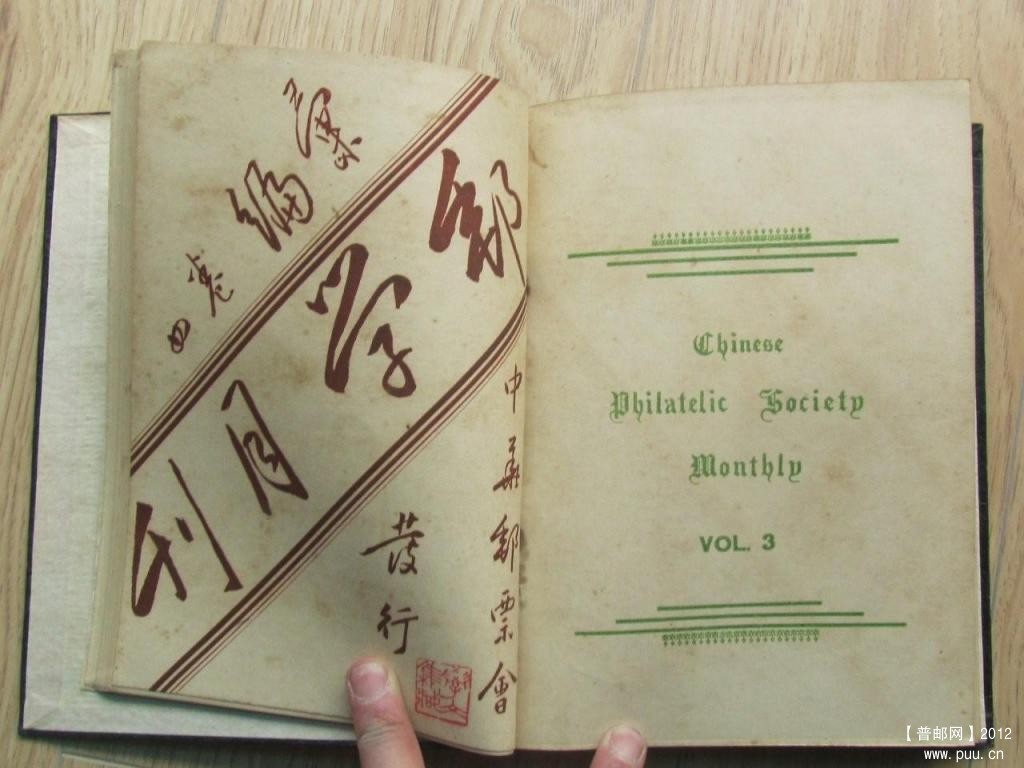 彙編
卷四
郵學月刊
中華郵票會
發行
Chinese
Philatelic Society
Monthly
VOL. 3
【普邮网】2012
www.puu.cn